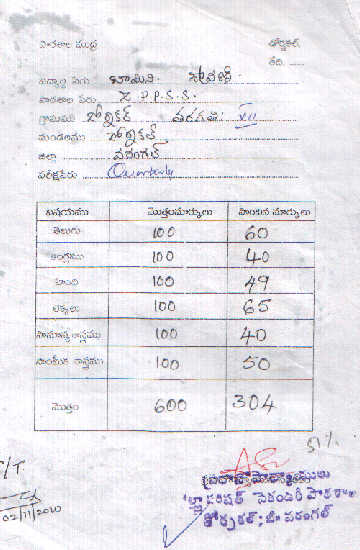 పాఠశాల ముద్ర డోర్నకల్
తేది. ......
విద్యార్థి పేరు
పాఠశాల పేరు Z.P.P.S.S.
గ్రామము డోర్నకల్ తరగతి: VII
మండలము డోర్నకల్
జిల్లా వరంగల్
పరీక్షపేరు Quarterly
విషయము మొత్తంమార్కులు పొందిన మార్కులు
తెలుగు 100 60
ఆంగ్లము 100 40
హింది 100 49
లెక్కలు 100 65
సామాన్య శాస్త్రము 100 40
సాంఘీక శాస్త్రము 100 50
మొత్తం 600 304
51%
ప్రధానోపాధ్యాయులు
జిల్లా పరిషత్ సెకండరీ పాఠశాల
డోర్నకల్; జి. వరంగల్
02/11/2010